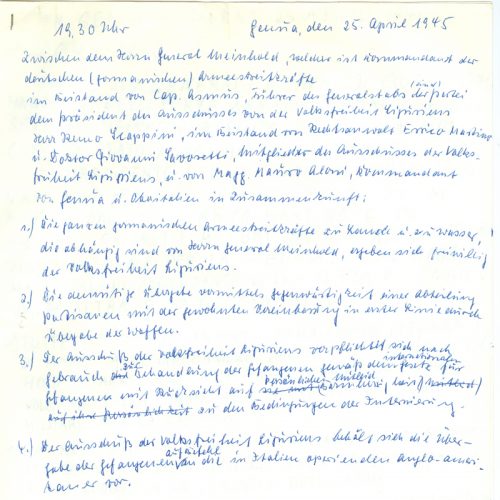 19,30 Uhr Genua, den 25. April 1945
Zwischen dem Herrn General Meinhold, welcher ist Kommandant der
deutschen (germanischen) Armeestreitkräfte
im Beistand von Cap. Asmus, Führer des Generalstabs (und) der Partei
dem Präsident des Ausschusses von der Volksfreiheit Liguriens
Herr Remo Scappini, im Beistand von Rechtsanwalt Errico Martino
u. Doktor Giovanni Savoretti, Mitglieder des Ausschusses der Volks-
freiheit Liguriens, u. von Magg. Mauro Aloni, Kommandant
von Genua u. in Zusammenkunft:
1.) Die ganzen germanischen Armeestreitkräfte zu Lande u. zu Wasser,
die abhängig sind von Herrn General Meinhold, ergeben sich freiwillig
der Volksfreiheit Liguriens.
2.) Die demütige Übergabe vermittels Gegenwärtigkeit einer Abteilung
Partisanen mit der gewohnten Vereinbarung in erster Linie durch
Übergabe der Waffen.
3.) Der Ausschuß der Volksfreiheit Liguriens verpflichtet sich nach
Gebrauch zur Behandlung der Gefangenen gemäß internationalen Gesetze für
Gefangenen mit Rücksicht auf persönlichen
auf ihre Persönlichkeit zu den Bedingungen der Internierung.
4.) Der Ausschuß der Volksfreiheit Liguriens behält sich die Über-
gabe der Gefangenen an die in Italien operienden Anglo-ameri-
kaner vor.